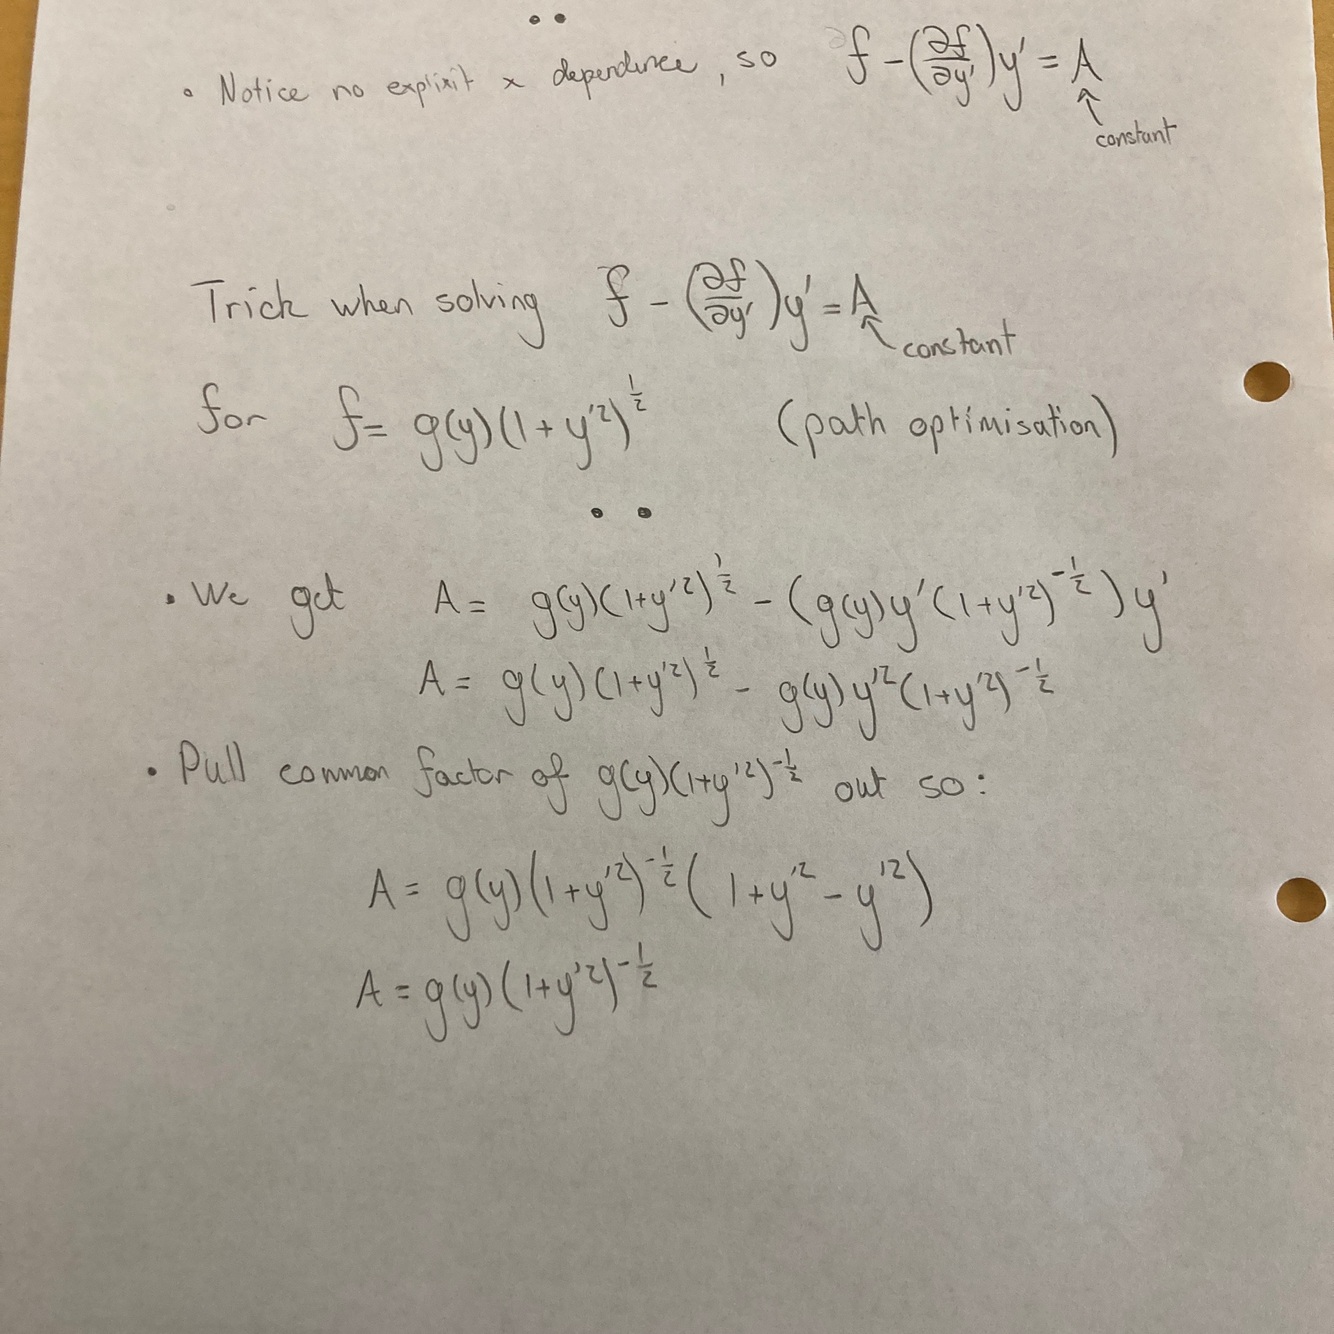 • Notice no explixit x dependence, so f - (∂f/∂y')y' = A
↑
constant
Trick when solving f - (∂f/∂y')y' = A
↖ constant
for f = g(y)(1+y'²)^½ (path optimisation)
• We get A = g(y)(1+y'²)^½ - (g(y)y'(1+y'²)^-½)y'
A = g(y)(1+y'²)^½ - g(y)y'²(1+y'²)^-½
• Pull common factor of g(y)(1+y'²)^-½ out so:
A = g(y)(1+y'²)^-½(1+y'²-y'²)
A = g(y)(1+y'²)^-½